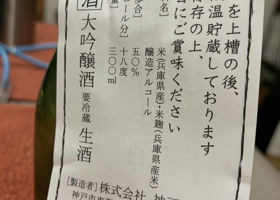 を上槽の後、
温貯蔵しております
存の上、
にご賞味ください
名】
米(兵庫県産)・米麹(兵庫県産米)
醸造アルコール
五〇%
分】
十八度
三〇〇ml
酒
大吟醸酒 要冷蔵 生酒
[製造者] 株式会社 神
神戸市東